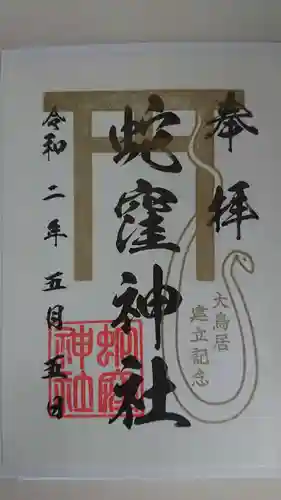 奉拝
大鳥居
建立記念
蛇窪神社
蛇窪神社
令和二年五月五日